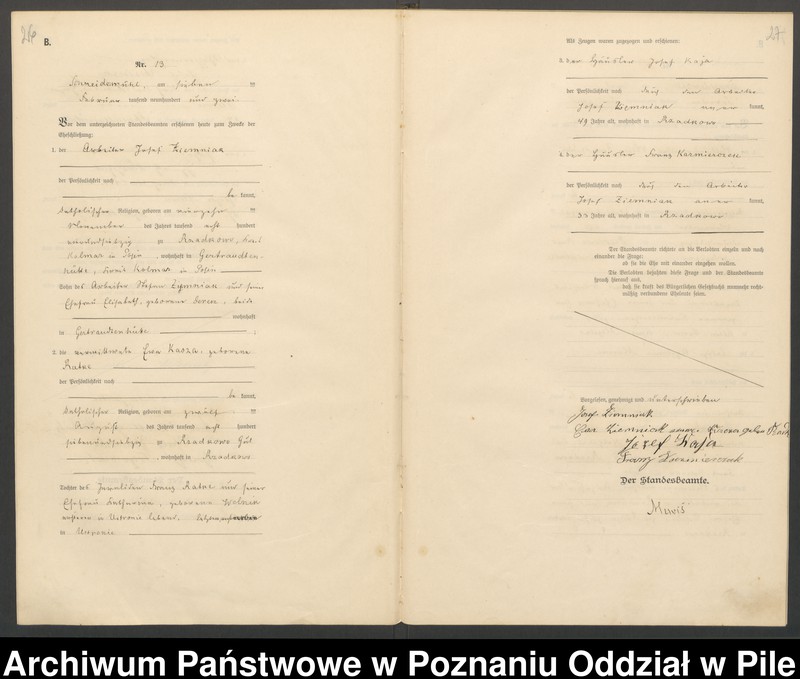 26
B.
Nr. 13.
Schneidemühl, am sieben ten
Februar tausend neunhundert und zwei.
Vor dem unterzeichneten Standesbeamten erschienen heute zum Zwecke der
Eheschließung:
1. der Arbeiter Josef Ziemniak
der Persönlichkeit nach
be kannt,
katholischer Religion, geboren am
November des Jahres tausend acht hundert
zu Rzadkowo, Kreis
Kolmar in Posen, wohnhaft in Gertraudten-
hütte, Kreis Kolmar in Posen
Sohn des Arbeiters Stefan Ziemniak und seiner
Ehefrau Elisabeth, geborenen, beide
wohnhaft
in Gertraudtenhütte;
2. die verwittwete Eva Kasza, geborene
Ratae
der Persönlichkeit nach
be kannt,
katholischer Religion, geboren am zwölf ten
August des Jahres tausend acht hundert
siebenundsiebzig zu Rzadkowo Gut
, wohnhaft in Rzadkowo
Tochter des Franz Ratae und seiner
Ehefrau Katharina, geborenen
in
27
Als Zeugen waren zugezogen und erschienen:
3. der Häusler Josef Kaja
der Persönlichkeit nach durch den Arbeiter
Josef Ziemniak aner kannt,
49 Jahre alt, wohnhaft in Rzadkowo
4. der Häusler Franz Kazmierczak
der Persönlichkeit nach durch den Arbeiter
Josef Ziemniak aner kannt,
Jahre alt, wohnhaft in Rzadkowo
Der Standesbeamte richtete an die Verlobten einzeln und nach
einander die Frage:
ob sie die Ehe mit einander eingehen wollen.
Die Verlobten bejahten diese Frage und der Standesbeamte
sprach hierauf aus,
daß sie kraft des Bürgerlichen Gesetzbuchs nunmehr recht-
mäßig verbundene Eheleute seien.
Vorgelesen, genehmigt und unterschrieben
Josef Ziemniak
Ewa Ziemniak
Józef Kaja
Franz Kazmierczak
Der Standesbeamte.
Archiwum Państwowe w Poznaniu Oddział w Pile